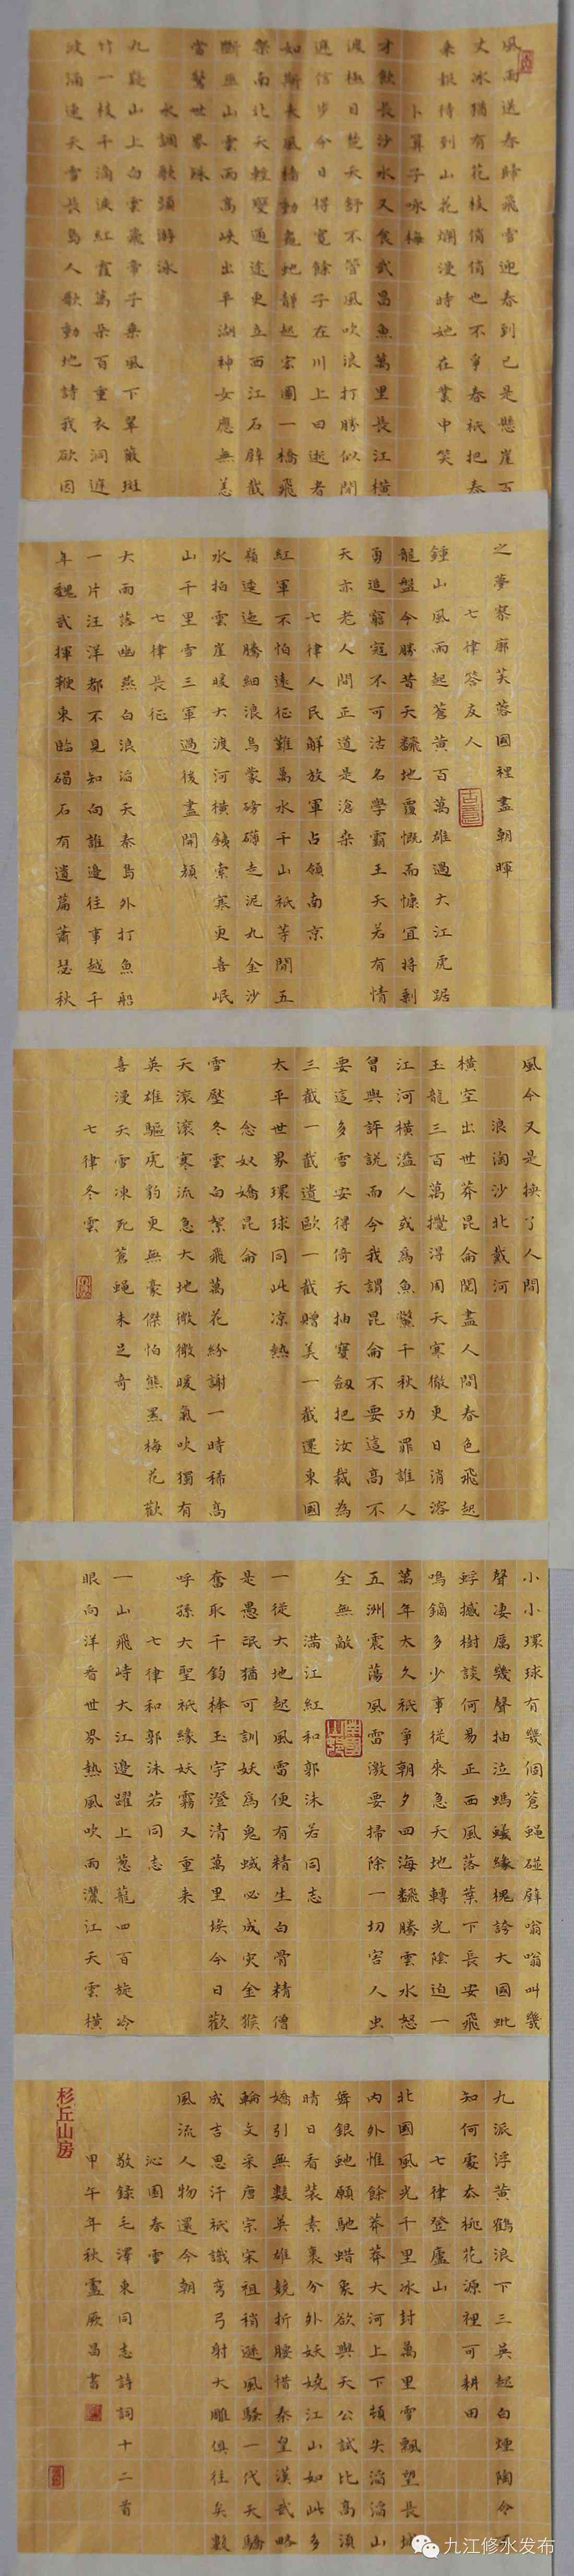 風雨送春歸飛雪迎春到已是懸崖百
丈冰猶有花枝俏俏也不爭春衹把春
來報待到山花爛漫時她在叢中笑
卜算子咏梅
才飲長沙水又食武昌魚萬里長江橫
渡極目楚天舒不管風吹浪打勝似閒
庭信步今日得寬餘子在川上曰逝者
如斯夫風檣動龜蛇靜起宏圖一橋飛
架南北天塹變通途更立西江石壁截
斷巫山雲雨高峽出平湖神女應無恙
當驚世界殊
水調歌頭游泳
九嶷山上白雲飛帝子乘風下翠微斑
竹一枝千滴淚紅霞萬朵百重衣洞庭
波涌連天雪長島人歌動地詩我欲因
之夢寥廓芙蓉國裡盡朝暉
七律答友人
鍾山風雨起蒼黃百萬雄過大江虎踞
龍盤今勝昔天翻地覆慨而慷宜將剩
勇追窮寇不可沽名學霸王天若有情
天亦老人間正道是滄桑
七律人民解放軍占領南京
紅軍不怕遠征難萬水千山衹等閒五
嶺逶迤騰細浪烏蒙磅礴走泥丸金沙
水拍雲崖暖大渡河橫鐵索寒更喜岷
山千里雪三軍過後盡開顏
七律長征
大雨落幽燕白浪滔天秦島外打魚船
一片汪洋都不見知向誰邊往事越千
年魏武揮鞭東臨碣石有遺篇蕭瑟秋
風今又是換了人間
浪淘沙北戴河
橫空出世莽昆侖閱盡人間春色飛起
玉龍三百萬攪得周天寒徹夏日消溶
江河橫溢人或為魚鱉千秋功罪誰人
曾與評說而今我謂昆侖不要這高不
要這多雪安得倚天抽寶劍把汝裁為
三截一截遺歐一截贈美一截還東國
太平世界環球同此涼熱
念奴嬌昆侖
雪壓冬雲白絮飛萬花紛謝一時稀高
天滾滾寒流急大地微微暖氣吹獨有
英雄驅虎豹更無豪傑怕熊羆梅花歡
喜漫天雪凍死蒼蠅未足奇
七律冬雲
小小環球有幾個蒼蠅碰壁嗡嗡叫幾
聲凄厲幾聲抽泣螞蟻緣槐誇大國蚍
蜉撼樹談何易正西風落葉下長安飛
鳴鏑多少事從來急天地轉光陰迫一
萬年太久衹爭朝夕四海翻騰雲水怒
五洲震蕩風雷激要掃除一切害人虫
全無敵
滿江紅和郭沫若同志
一從大地起風雷便有精生白骨精僧
是愚氓猶可訓妖為鬼蜮必成灾金猴
奮取千鈞棒玉宇澄清萬里埃今日歡
呼孫大聖衹緣妖霧又重來
七律和郭沫若同志
一山飛峙大江邊躍上蔥蘢四百旋冷
眼向洋看世界熱風吹雨灑江天雲橫
九派浮黃鶴浪下三吳起白煙陶令不
知何處去桃花源裡可耕田
七律登廬山
北國風光千里冰封萬里雪飄望長城
內外惟餘莽莽大河上下頓失滔滔山
舞銀蛇原馳蜡象欲與天公試比高須
晴日看裝素裹分外妖嬈江山如此多
嬌引無數英雄競折腰惜秦皇漢武略
輸文采唐宗宋祖稍遜風騷一代天驕
成吉思汗衹識彎弓射大雕俱往矣數
風流人物還今朝
沁園春雪
敬錄毛澤東同志詩詞十二首
甲午年秋盧厥昌書
杉丘山房
九江修水发布